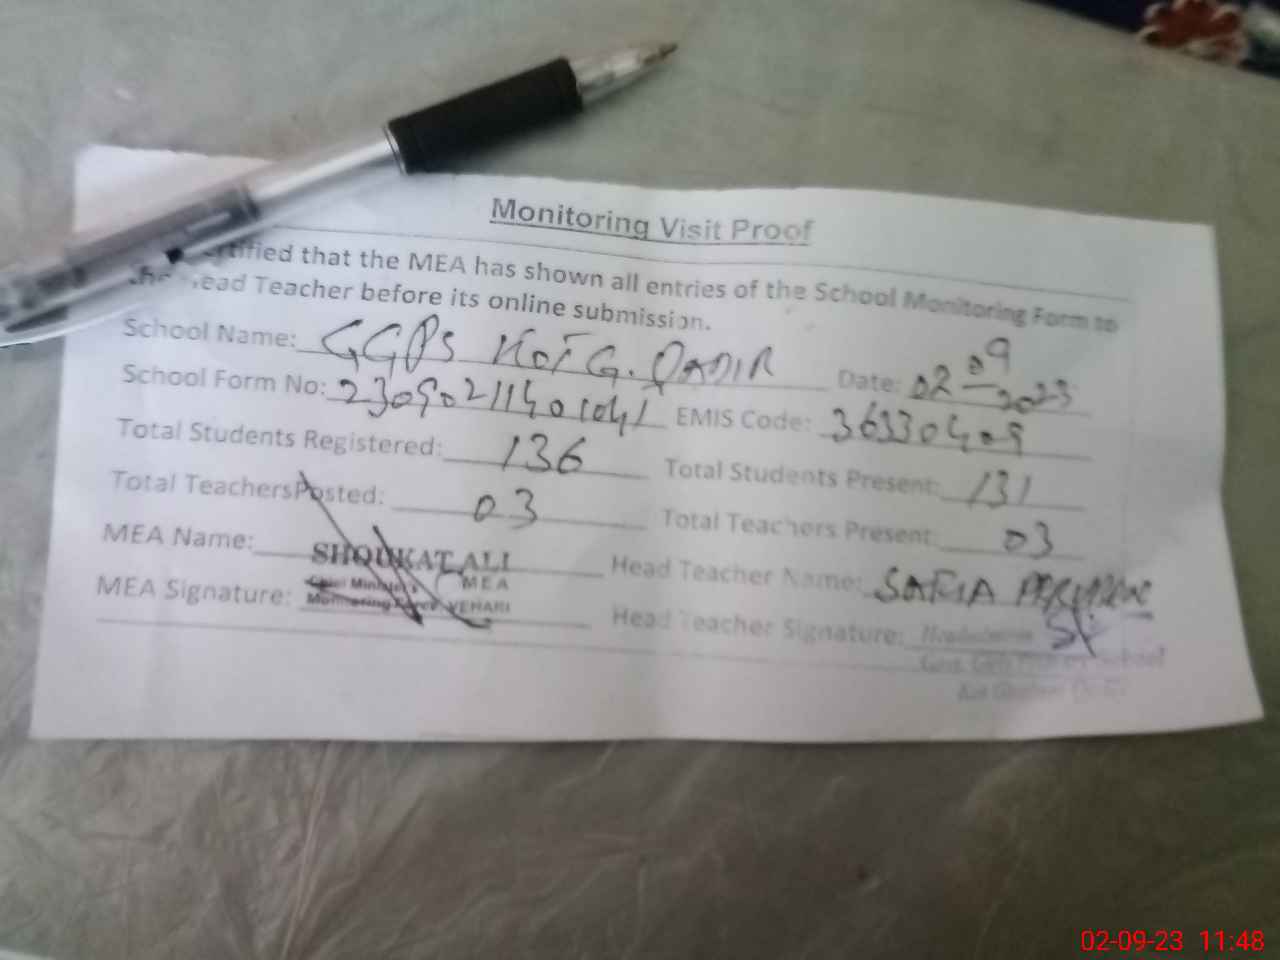 Monitoring Visit Proof
certified that the MEA has shown all entries of the School Monitoring Form to
the Head Teacher before its online submission.
School Name: GGPS KOT G. QADIR Date: 02-09-2023
School Form No: EMIS Code: 36330409
Total Students Registered: 136 Total Students Present: 131
Total Teachers Posted: 03 Total Teachers Present: 03
MEA Name: SHOUKAT ALI Head Teacher Name: SAFIA PERVEEN
MEA
Chief Minister's
Monitoring Force VEHARI
MEA Signature: Head Teacher Signature: Headmistress
Govt. Girls Primary School
Kot Ghulam Qadir
02-09-23 11:48